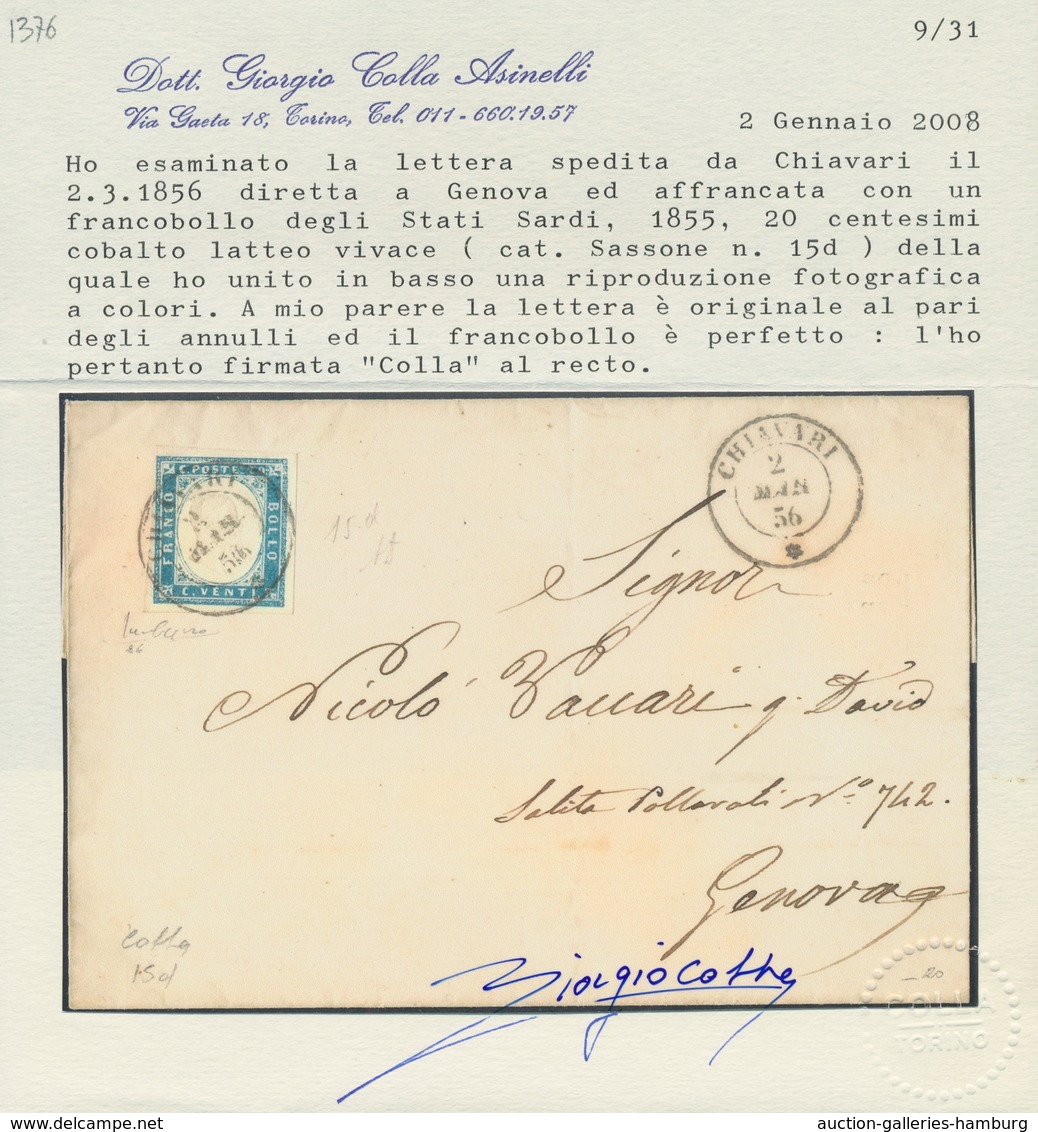 1376
9/31
Dott. Giorgio Colla Asinelli
Via Gaeta 18, Torino, Tel. 011-660.19.57
2 Gennaio 2008
Ho esaminato la lettera spedita da Chiavari il
2.3.1856 diretta a Genova ed affrancata con un
francobollo degli Stati Sardi, 1855, 20 centesimi
cobalto latteo vivace ( cat. Sassone n. 15d ) della
quale ho unito in basso una riproduzione fotografica
a colori. A mio parere la lettera è originale al pari
degli annulli ed il francobollo è perfetto : l'ho
pertanto firmata "Colla" al recto.
C. POSTE 20
FRANCO
BOLLO
C. VENTI
CHIAVARI
56
CHIAVARI
2
MAR
56
15.d
Signor
Nicoló Vaccari q David
Salita Pollaroli N.o 742.
Genova
Colla
15d
Giorgio Colla
20
COLLA
TORINO
auction-galleries-hamburg